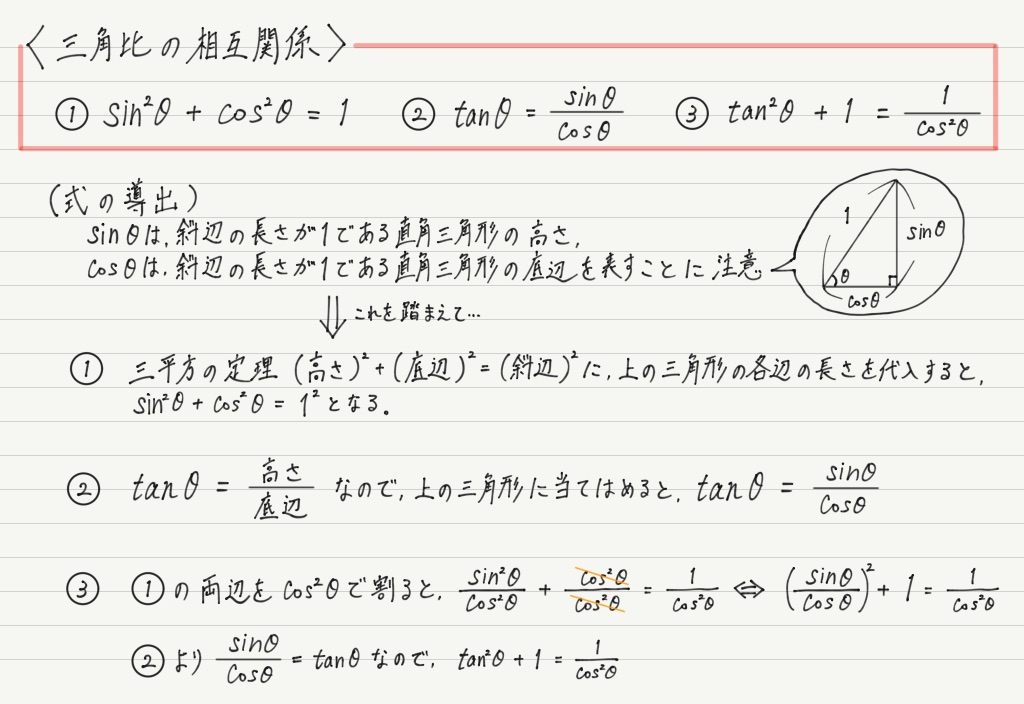 〈三角比の相互関係〉
① sin²θ + cos²θ = 1 ② tanθ = sinθ/cosθ ③ tan²θ + 1 = 1/cos²θ
(式の導出)
sinθは、斜辺の長さが1である直角三角形の高さ、
cosθは、斜辺の長さが1である直角三角形の底辺を表すことに注意。
1
sinθ
θ
cosθ
⇓ これを踏まえて…
① 三平方の定理 (高さ)² + (底辺)² = (斜辺)² に、上の三角形の各辺の長さを代入すると、
sin²θ + cos²θ = 1² となる。
② tanθ = 高さ/底辺 なので、上の三角形に当てはめると、tanθ = sinθ/cosθ
③ ①の両辺をcos²θで割ると、sin²θ/cos²θ + cos²θ/cos²θ = 1/cos²θ ⇔ (sinθ/cosθ)² + 1 = 1/cos²θ
②より sinθ/cosθ = tanθ なので、tan²θ + 1 = 1/cos²θ